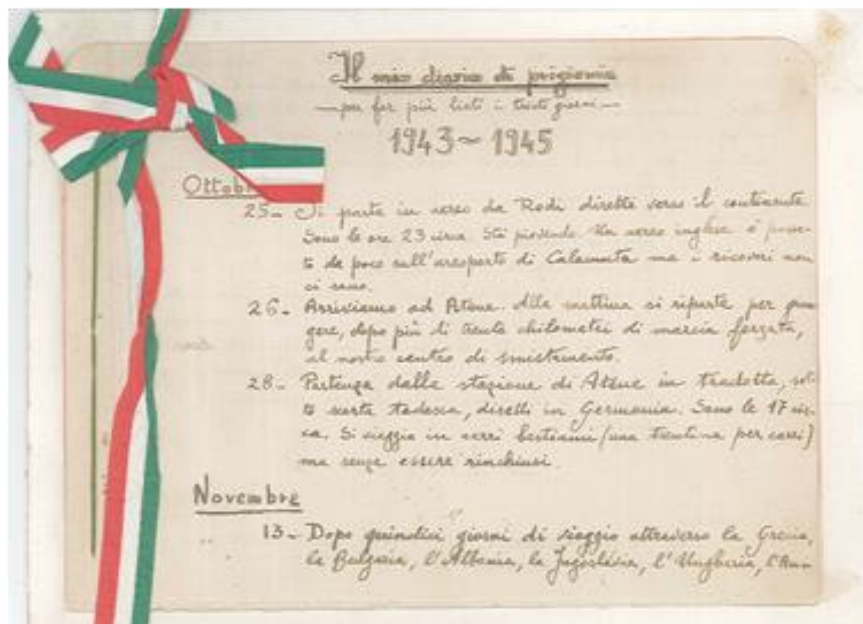 Il mio diario di prigionia
—per far più lieti i tristi giorni—
1943~1945
Ottob
25- Si parte in aereo da Rodi diretti verso il continente.
Sono le ore 23 circa. Sta piovendo. Un aereo inglese è passa-
to da poco sull'aeroporto di Calamata ma i ricoveri non
ci sono.
26- Arriviamo ad Atene. Alla mattina si riparte per giun
gere, dopo più di trenta chilometri di marcia forzata,
al nostro centro di smistamento.
28- Partenza dalla stazione di Atene in tradotta, sot-
to scorta tedesca, diretti in Germania. Sono le 17 cir-
ca. Si viaggia in carri bestiami (una trentina per carri)
ma senza essere rinchiusi.
Novembre
13- Dopo quindici giorni di viaggio attraverso la Grecia,
la Bulgaria, l'Albania, la Jugoslavia, l'Ungheria, l'Aus